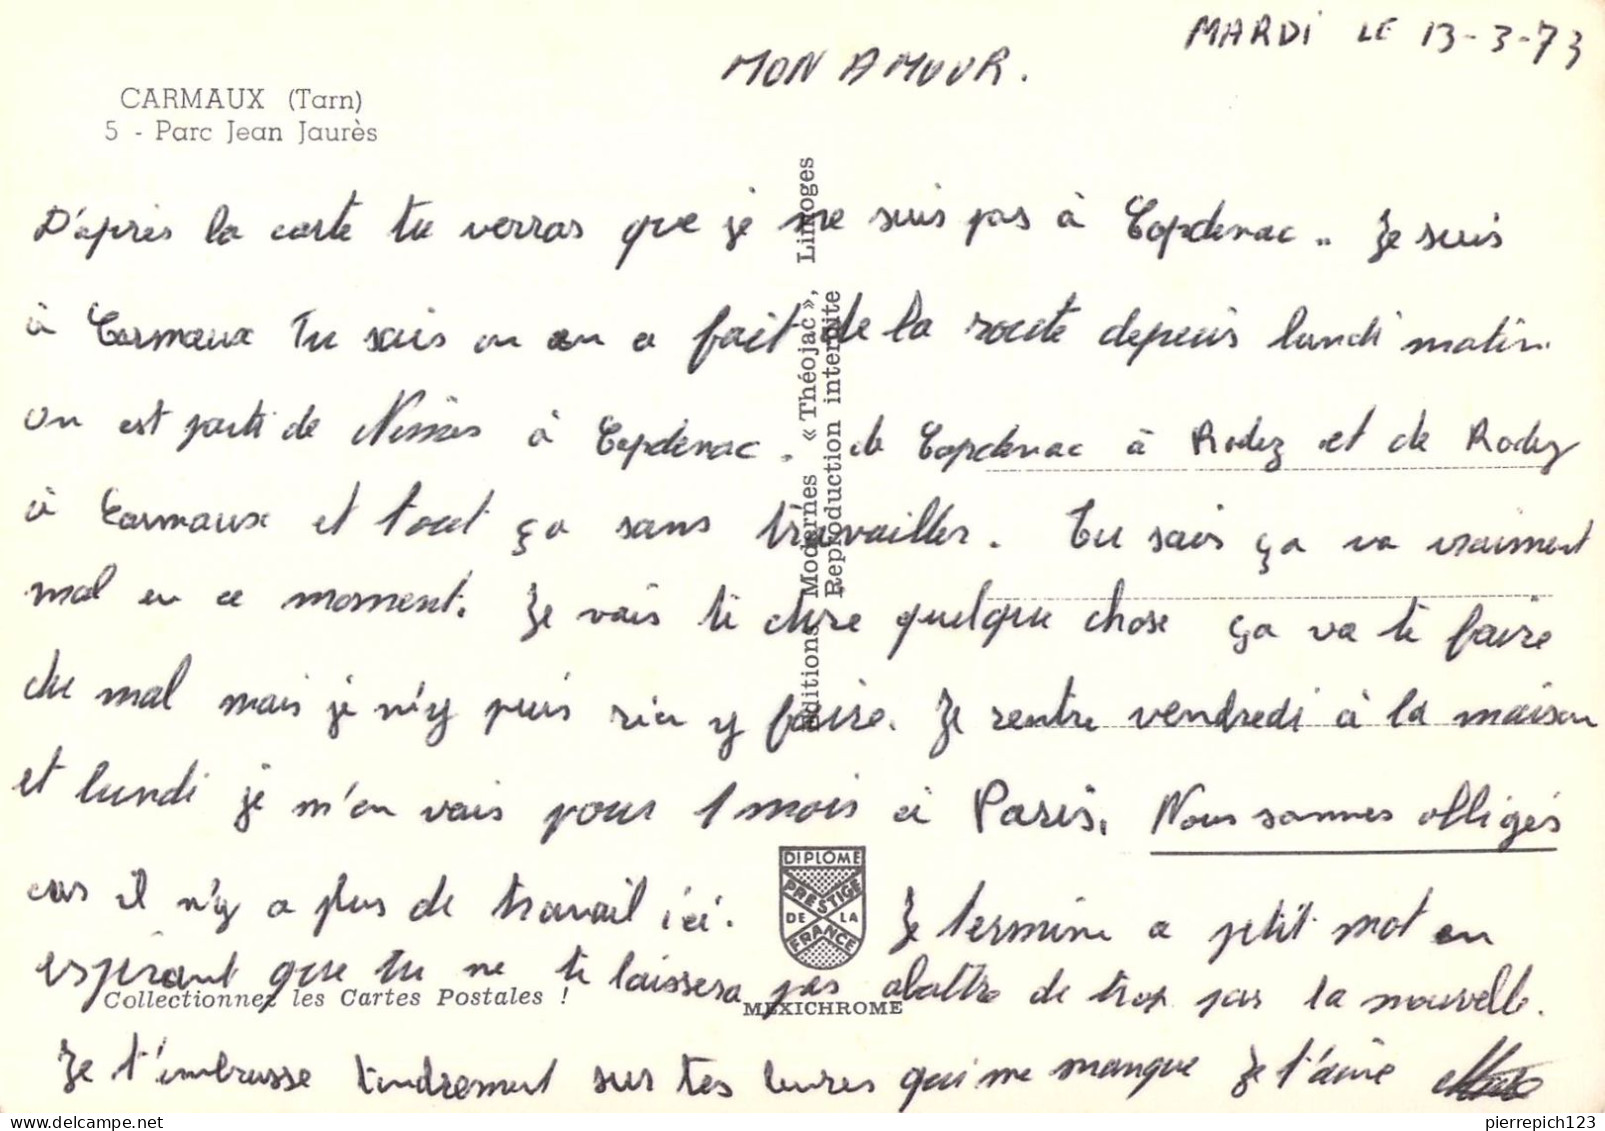 MARDI LE 13-3-73
MON AMOUR.
CARMAUX (Tarn)
5 - Parc Jean Jaurès
D'après la carte tu verras que je ne suis pas à Capdenac.. Je suis
à Carmaux Tu sais on en a fait de la route depuis lundi matin
on est parti de Nimes à Capdenac. de Capdenac à Rodez et de Rodez
à Carmaux et tout ça sans travailler. Tu sais ça va vraiment
mal en ce moment. Je vais te dire quelque chose ça va te faire
du mal mais je n'y puis rien y faire. Je rentre vendredi à la maison
et lundi je m'en vais pour 1 mois à Paris. Nous sommes obligés
cas il n'y a plus de travail ici. Je termine ce petit mot en
espérant que tu ne te laissera pas abattre de trop par la nouvelle.
Je t'embrasse tendrement sur tes levres qui me manque Je t'aime
Editions Modernes « Théojac », Limoges
Reproduction interdite
DIPLOME
PRESTIGE
DE LA
FRANCE
Collectionnez les Cartes Postales !
MEXICHROME
pierrepich123